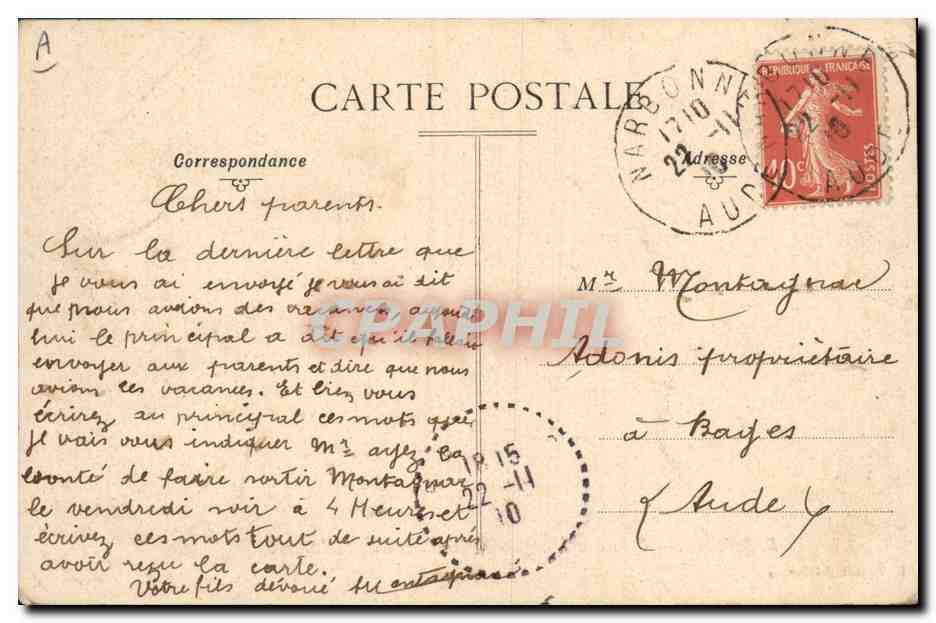 A
CARTE POSTALE
Correspondance
Chers parents.
Sur la dernière lettre que
je vous ai envoyé je vous ai dit
que nous avions des vacances, aujourd'
hui le principal a dit qu'il fallait
envoyer aux parents et dire que nous
avions les vacances. Et bien vous
écrirez au principal ces mots que
je vais vous indiquer Mr ayez la
bonté de faire sortir Montagnac
le vendredi soir à 4 Heures et
écrivez ces mots tout de suite après
avoir reçu la carte.
Votre fils dévoué
Adresse
Mr Montagnac
Adonis propriétaire
à Bages
(Aude)
NARBONNE
17 10
22 -11
10
AUDE
NARBONNE
17 10
22 -11
10
AUDE
REPUBLIQUE FRANÇAISE
10c
POSTES
18 15
22 -11
10
CPAPHIL